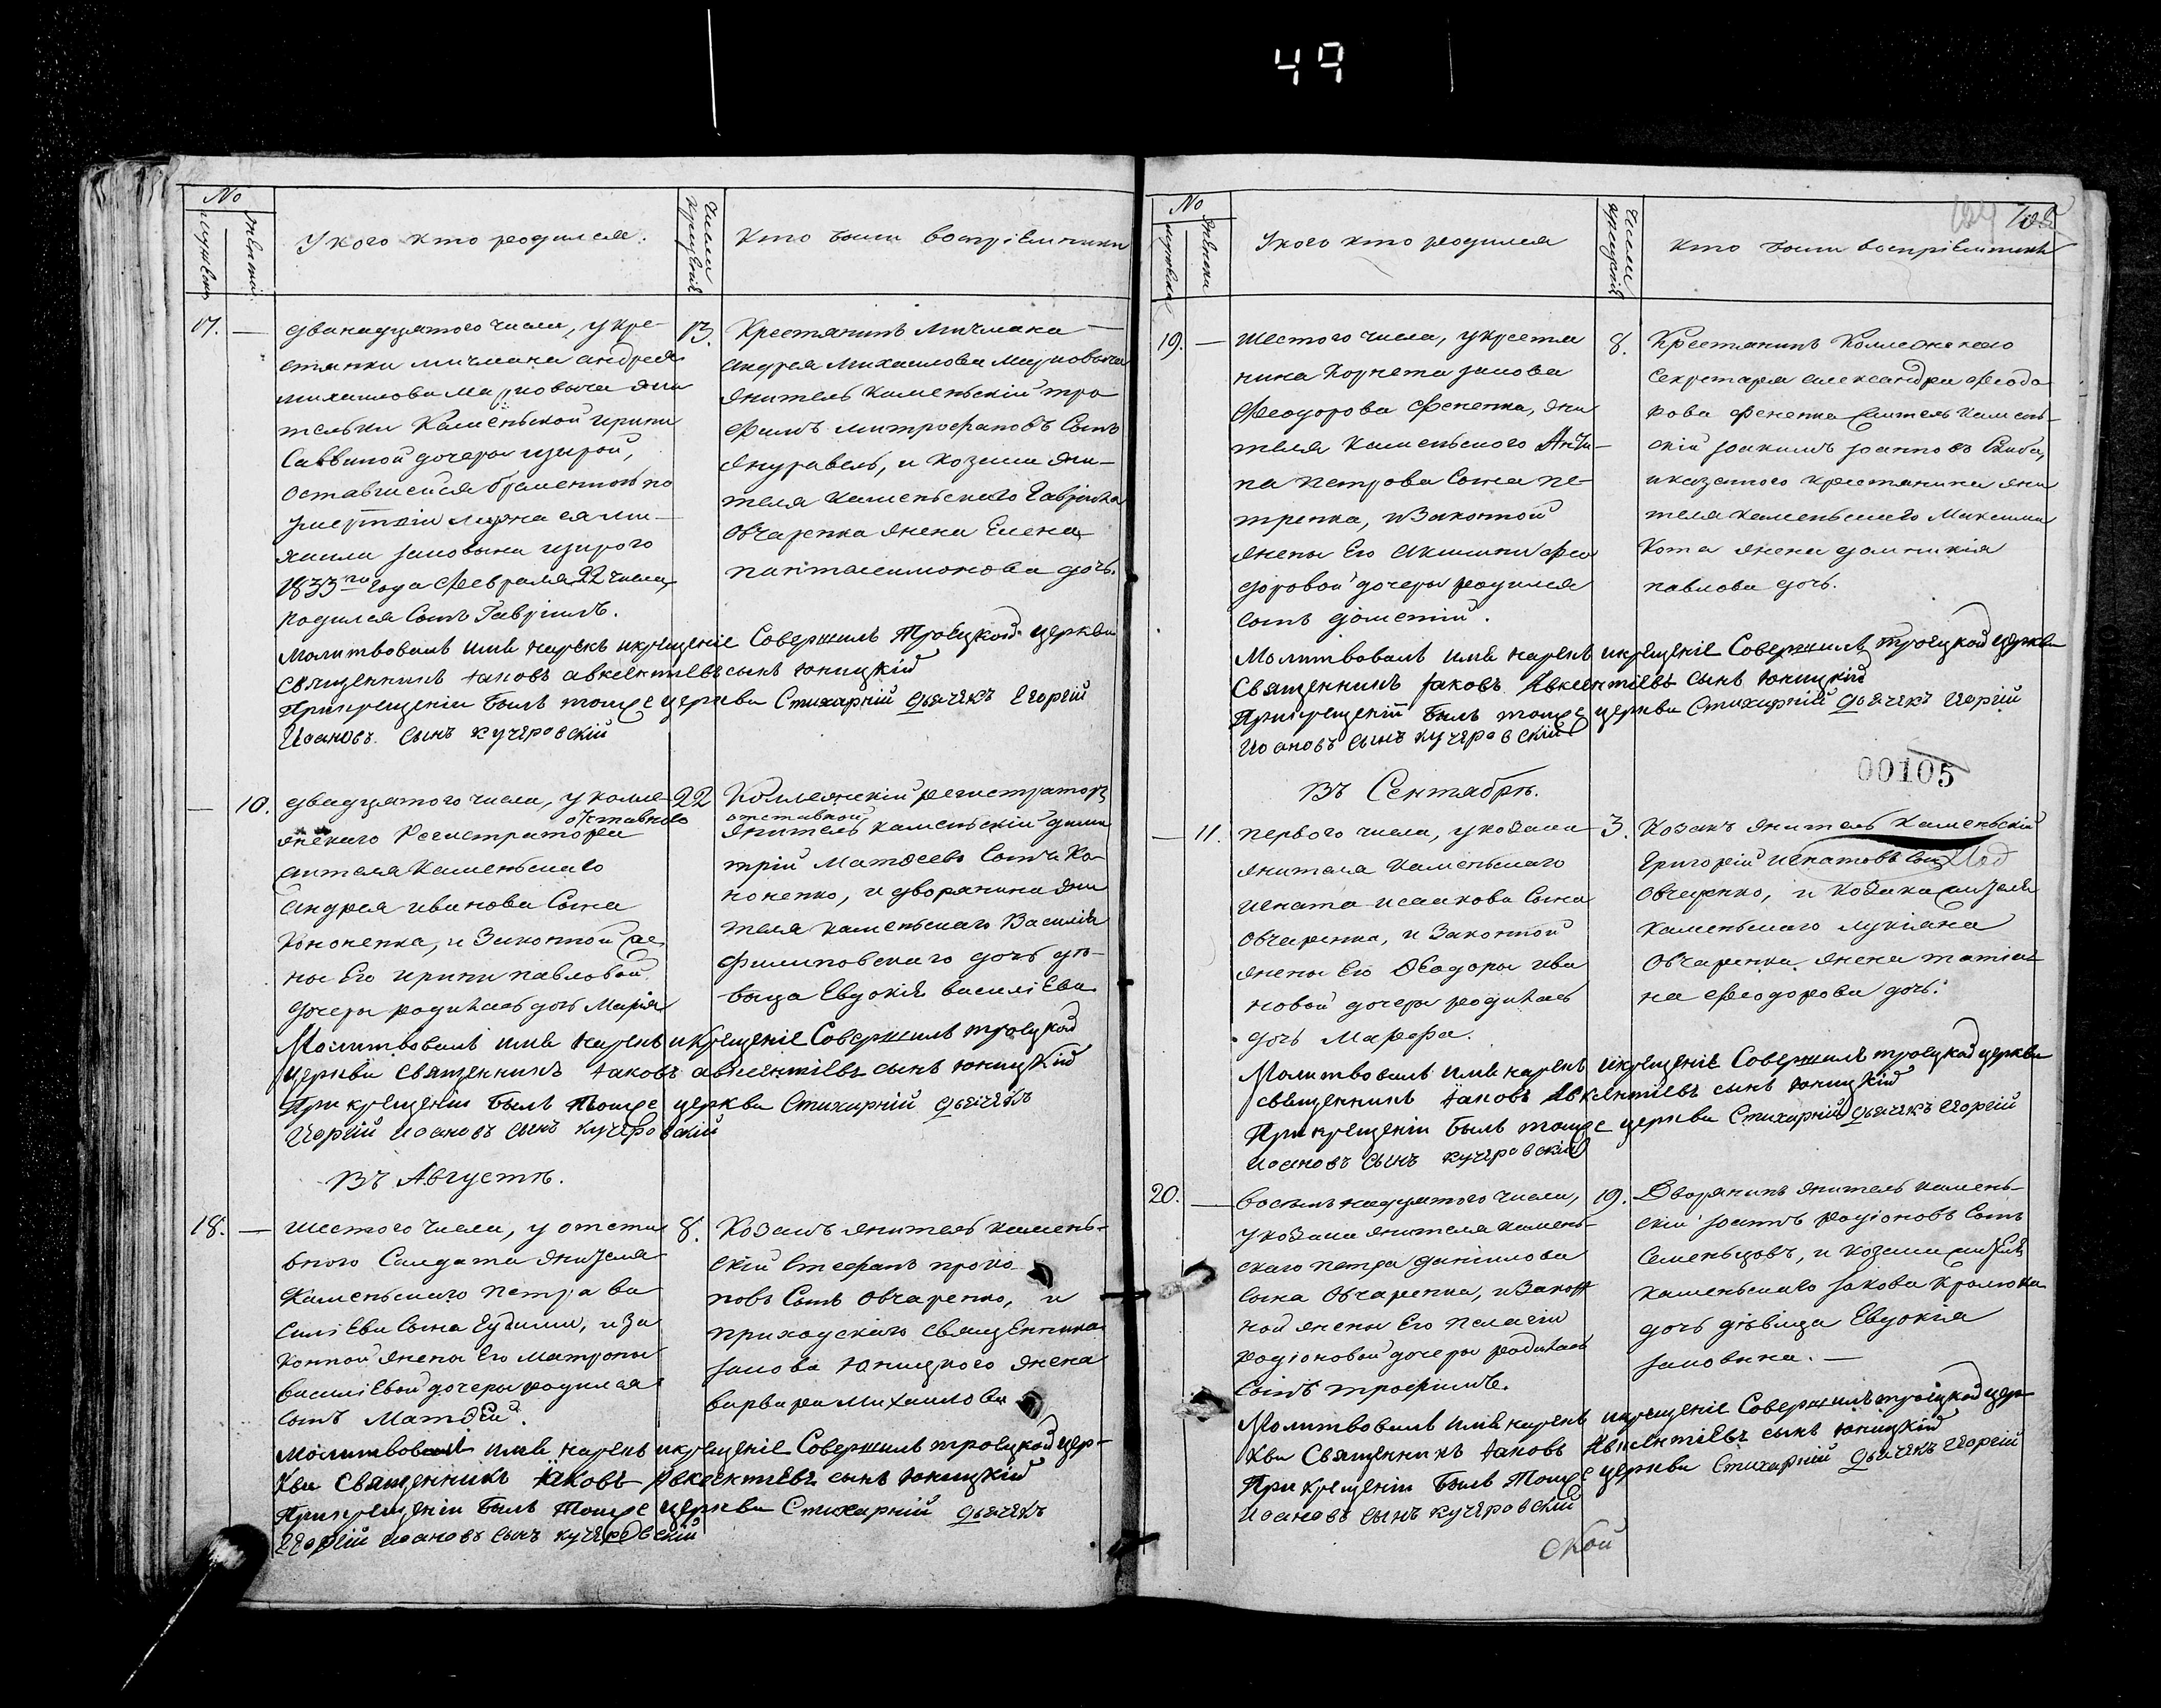 49
No
мужеска
женска
У кого кто родился.
Числа крещенія
Кто были воспріемники
17. — двенадцятого числа, у кре-
стянки мичмана андрея
михаилова марковыча жи
тельки Каменьской ирини
Саввиной дочеры
оставшейся беременною по
умертвіи мужа ея ми-
хаила
1833го года Февраля 22 числа,
родился сынъ Гавріилъ.
13. Крестянинъ мичмана —
андрея Михаилова марковыча
житель каменьскій тро
фимъ митрофановъ сынъ
журавель, и козака жи-
теля каменьского Гавріила
Овчаренка жена Елена
пантелимонова дочь.
Молитвовалъ имя нарекъ и крещеніе Совершилъ Троецкой церкви
Священникъ Іаковъ авксентіевъ сынъ Юницкій
При крещеніи былъ тоиже церкви Стихарній дьячекъ Егоргій
Иоановъ сынъ кучеровскій
10. двадцятого числа, у колле-
жского отставного Регистратора
жителя каменьского
Андрея иванова сына
Кононенка, и Законной же
ны его ирины павловой
дочеры родилась дочь Марія
22 Коллежскій регистраторъ
отставной
житель каменьскій дими
трій Матѳеевъ сынъ Ко-
ноненко, и дворянина жи
теля каменьского Василія
филиповского дочь дѣ-
вица Евдокія василіева
Молитвовалъ имя нарекъ и крещеніе Совершилъ троецкой
церкви священникъ Іаковъ авксентіевъ сынъ Юницкій
При крещеніи былъ тоиже церкви Стихарній дьячекъ
Иоргій Иоановъ сынъ кучеровскій
Въ Августѣ.
18. — шестого числа, у отста
вного Салдата жителя
Каменьского петра ва
силіева сына
и за
конной жены его матроны
василіевой дочеры родился
сынъ Матѳей.
8. Козакъ житель камень-
скій Стефанъ проко
повъ сынъ Овчаренко, и
приходского священника
Іакова Юницкого жена
варвара Михаилова
Молитвовалъ имя нарекъ и крещеніе Совершилъ троецкой цер-
кви Священникъ Іаковъ Авксентіевъ сынъ Юницкій
При крещеніи былъ тоиже церкви Стихарній дьячекъ
Егоргій иоановъ сынъ кучеровскій
No
мужеска
женска
У кого кто родился
Числа крещенія
Кто были воспріемники
19. — шестого числа, у крестя
нина Корнета іакова
Феодорова Фененка, жи
теля каменьского Анти-
па петрова сына пе-
тренка, и Законной
жены его акилини фео
доровой дочеры родился
сынъ дометій.
8. Крестянинъ Коллежского
Секретаря александра феодо
рова фененка житель камень-
скій іоакимъ іоанновъ Скиба,
и казенного крестянина жи
теля каменьского Максима
Кота жена домникія
павлова дочь.
Молитвовалъ имя нарекъ и крещеніе Совершилъ троецкой церкви
Священникъ Іаковъ Авксентіевъ сынъ Юницкій
При крещеніи былъ тоиже церкви Стихарній дьячекъ Иоргій
Иоановъ сынъ кучеровскій
00105
Въ Сентябрѣ.
11. первого числа, у козака
жителя каменьского
игната исаакова сына
Овчаренка, и Законной
жены его Ѳеодоры ива
новой дочеры родилась
дочь Марфа.
3. Козакъ житель каменьскій
Григорій игнатовъ сынъ
Овчаренко, и козака жителя
каменьского лукіана
Овчаренка жена татіа-
на феодорова дочь.
Молитвовалъ имя нарекъ и крещеніе Совершилъ троецкой церкви
священникъ Іаковъ Авксентіевъ сынъ Юницкій
При крещеніи былъ тоиже церкви Стихарній дьячекъ Иоргій
Иоановъ сынъ кучеровскій
20. — восьмнадцятого числа,
у козака жителя камень-
ского петра данилова
сына Овчаренка, и Закон
ной жены его пелагіи
родіоновой дочеры родилась
сынъ трофимъ.
19. Дворянинъ житель камень-
скій іоанъ родіоновъ сынъ
Семеньцовъ, и козака жителя
каменьского іакова
дочь дѣвица Евдокія
іаковына. —
Молитвовалъ имя нарекъ и крещеніе Совершилъ троицкой цер
кви Священникъ Іаковъ Авксентіевъ сынъ Юницкій
При крещеніи былъ тоиже церкви Стихарній дьячекъ Иоргій
Иоановъ сынъ кучеровскій
ской